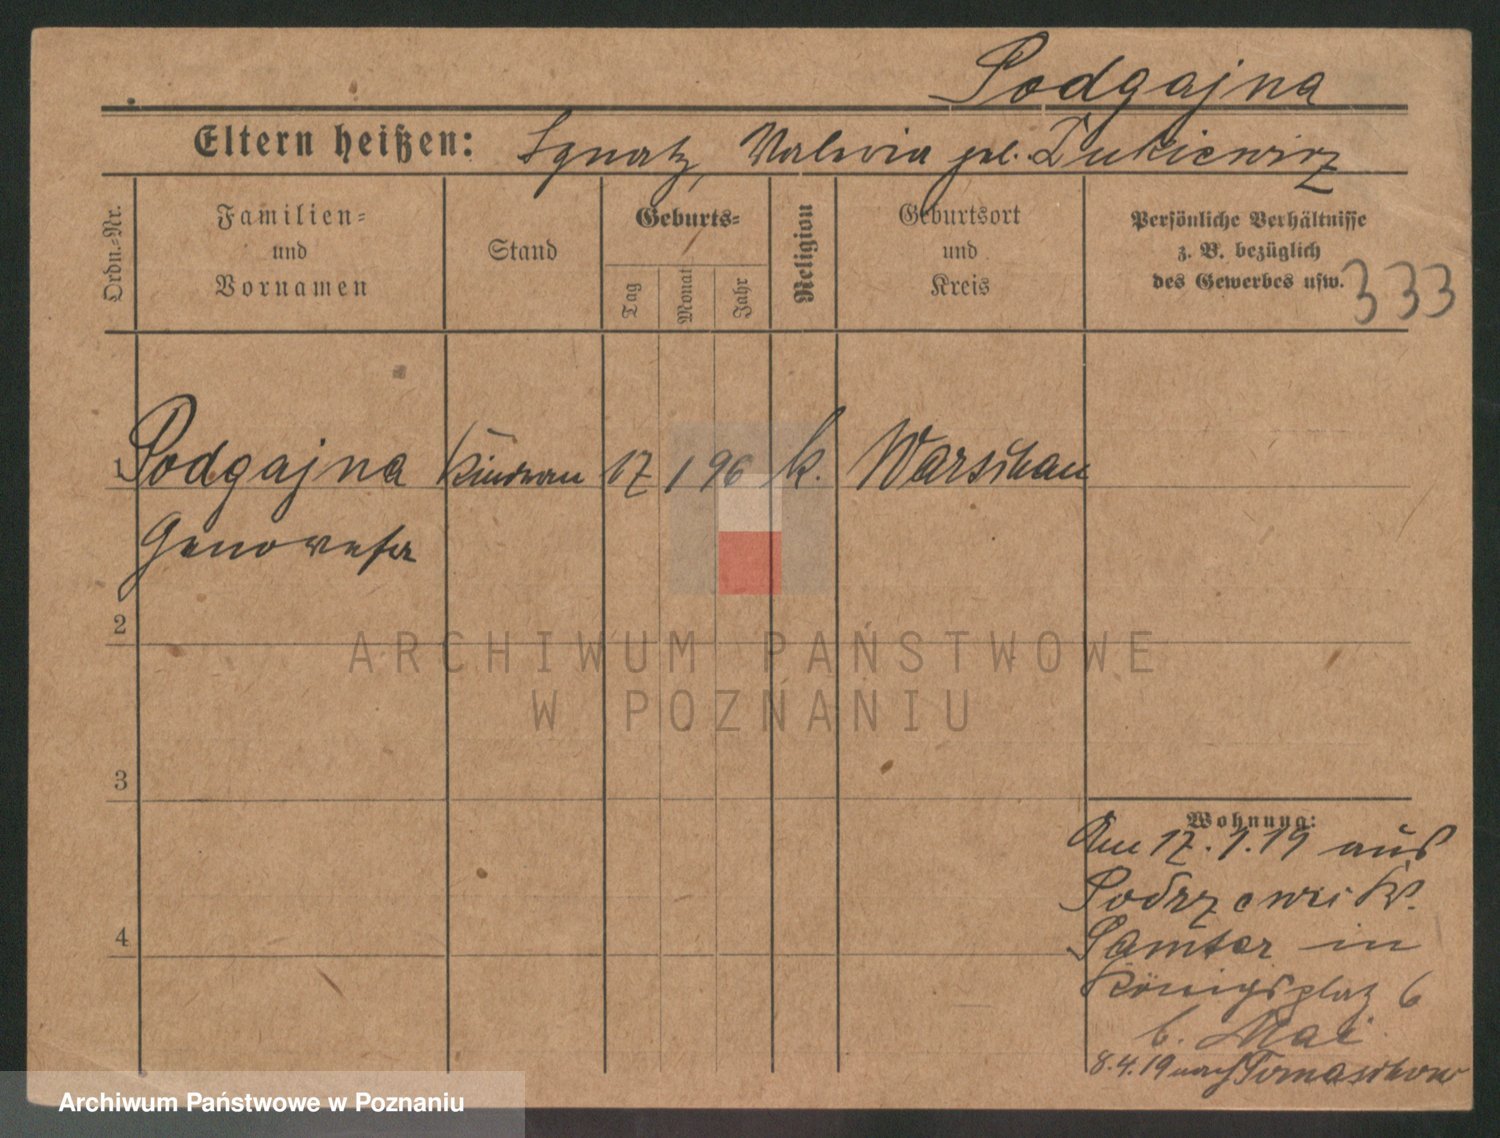 Podgajna
Eltern heißen: Ignatz, Valeria geb. Zukiewicz
Ordn.-Nr.
Familien-
und
Vornamen
Stand
Geburts-
Tag
Monat
Jahr
Religion
Geburtsort
und
Kreis
Persönliche Verhältnisse
z. B. bezüglich
des Gewerbes usw.
333
1 Podgajna 17 1 96 k. Warschau
Genowefa
2
ARCHIWUM PAŃSTWOWE
W POZNANIU
3
4
Wohnung:
Am 17.1.19 aus
Podrzewie Kr.
Samter in
Königsplatz 6
b. Mai
8.4.19 nach Tomaschow
Archiwum Państwowe w Poznaniu